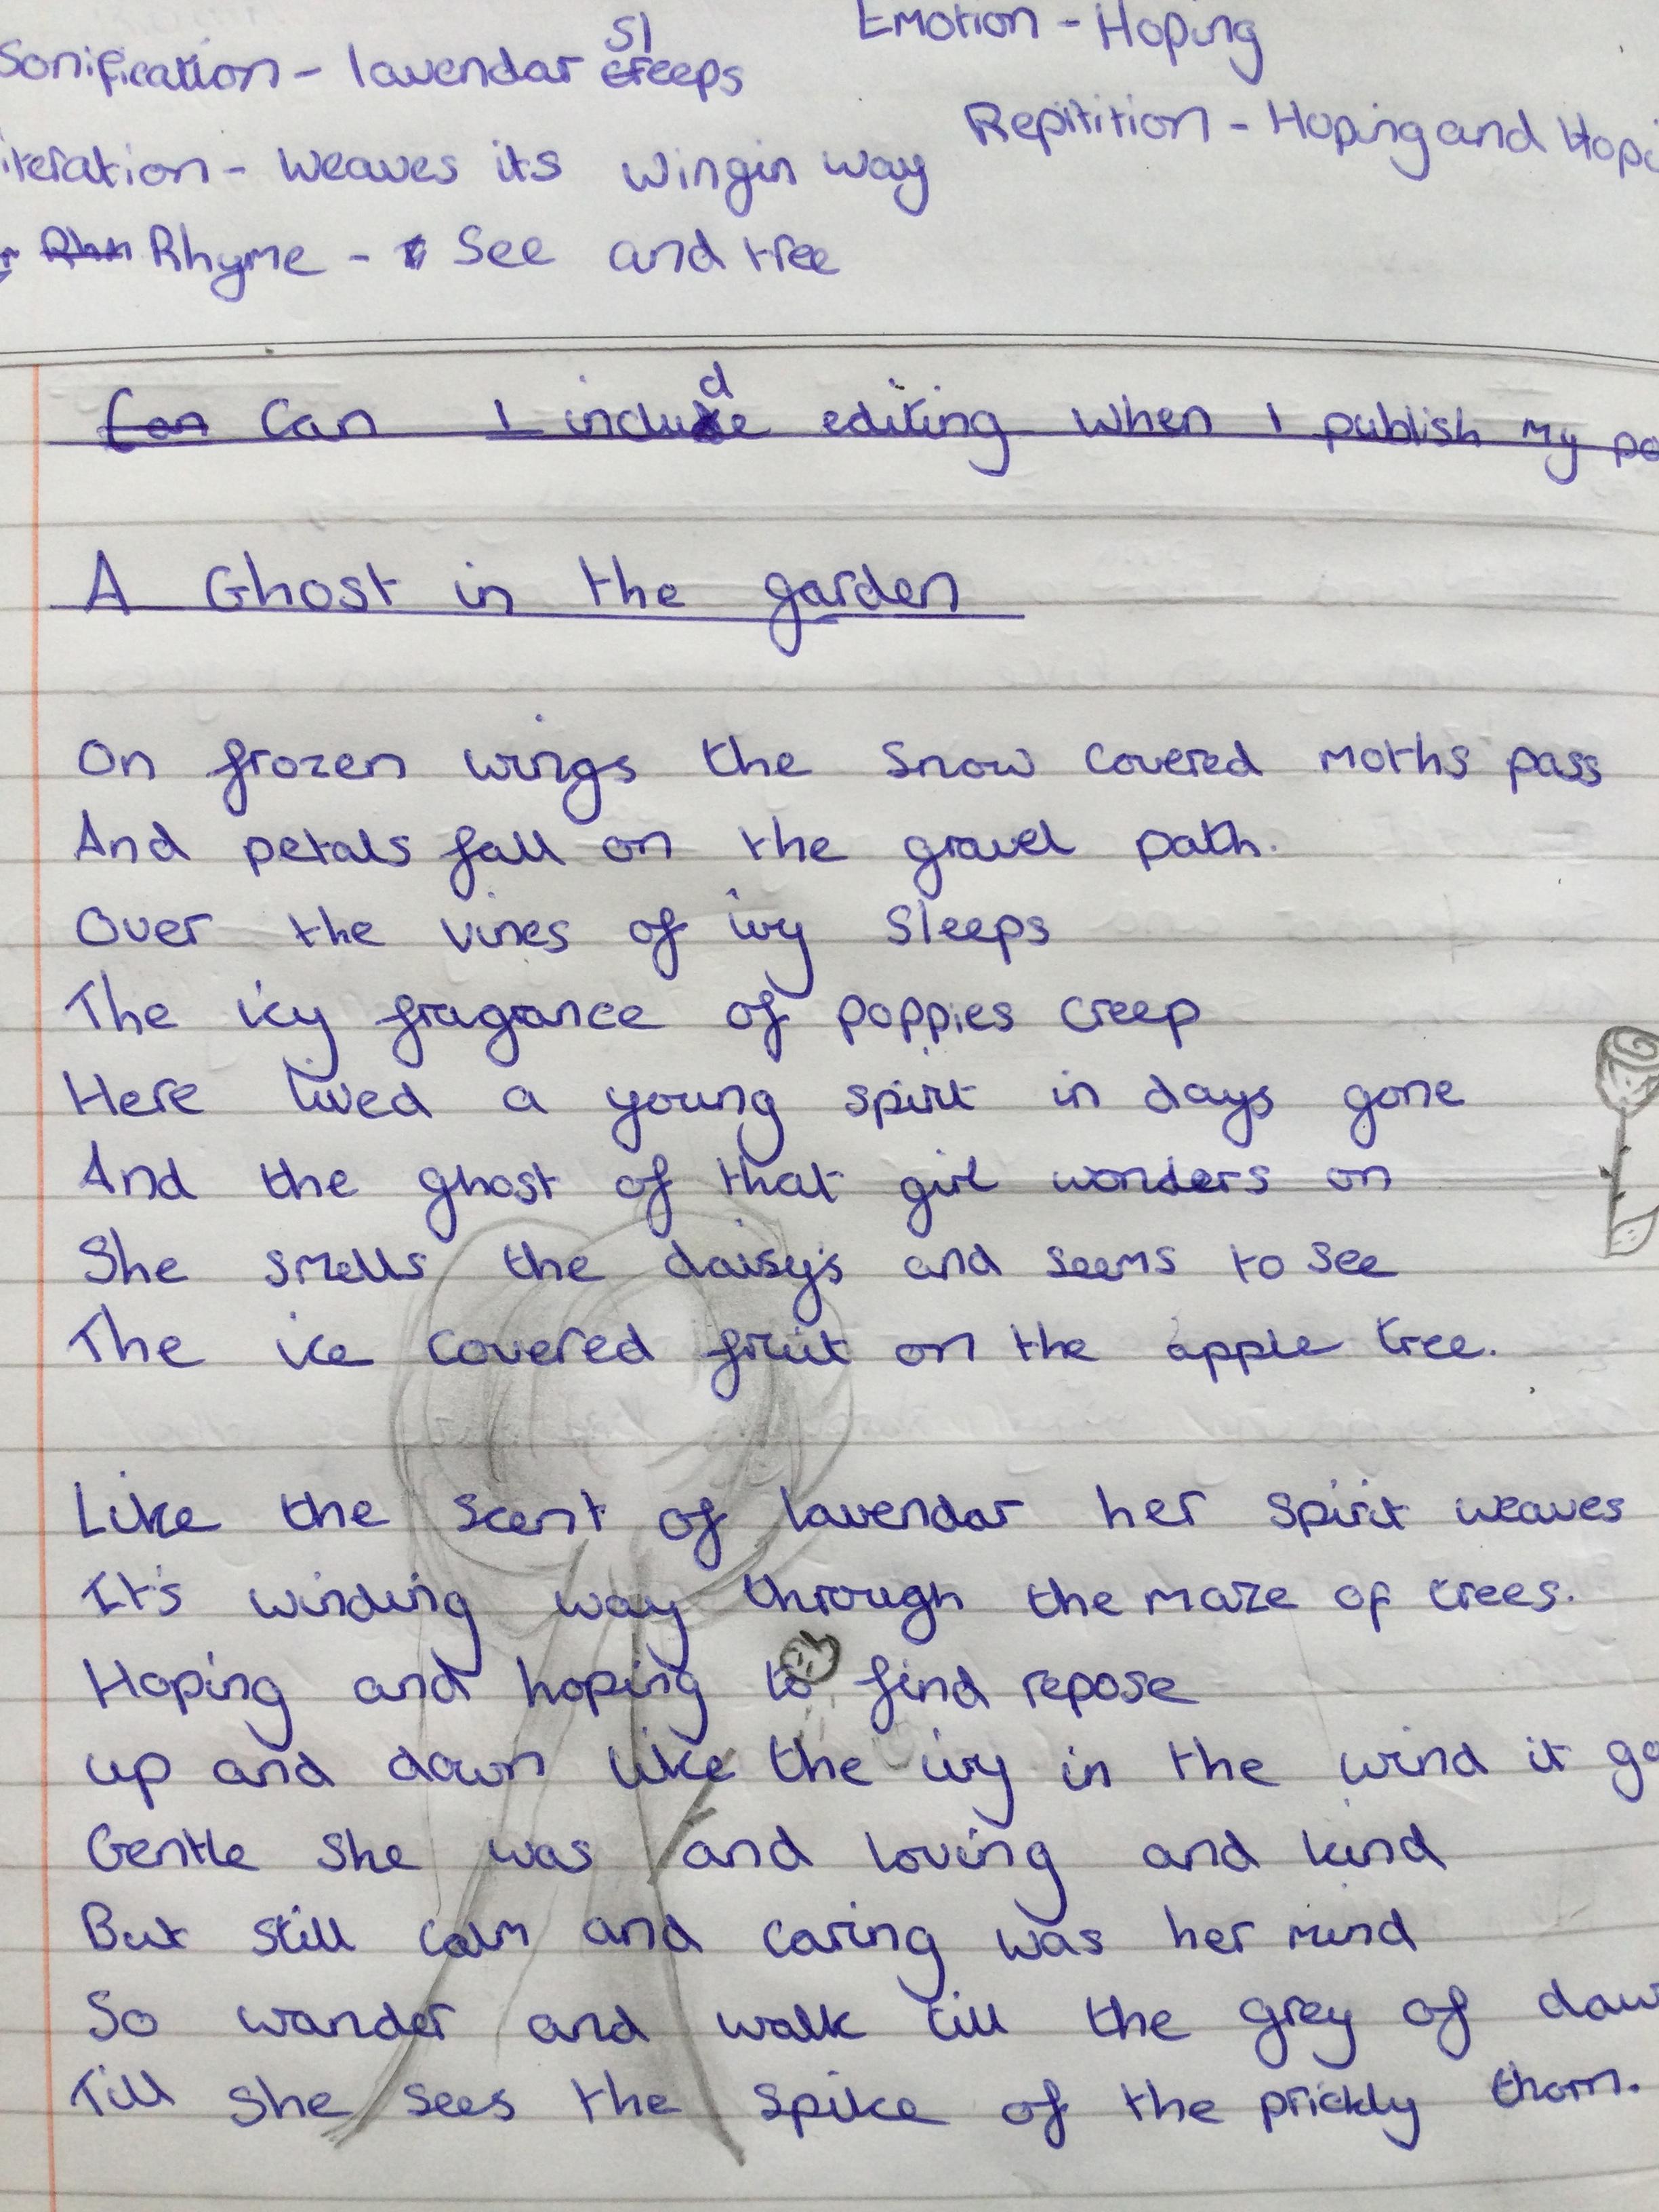 Sonification - lavendar sleeps
Emotion - Hoping
Repitition - Hoping and Hopi
iteration - Weaves its wingin way
Rhyme - See and tree
Can I include editing when I publish my po
A Ghost in the garden
On frozen wings the snow covered moths pass
And petals fall on the gravel path.
Over the vines of ivy sleeps
The icy fragrance of poppies creep
Here lived a young spirit in days gone
And the ghost of that girl wonders on
She smells the daisy's and seems to see
The ice covered fruit on the apple tree.
Like the scent of lavendar her spirit weaves
It's winding way through the maze of trees.
Hoping and hoping to find repose
up and down like the ivy in the wind it go
Gentle she was and loving and kind
But still calm and caring was her mind
So wander and walk till the grey of daw
Till she sees the spike of the prickly thorn.